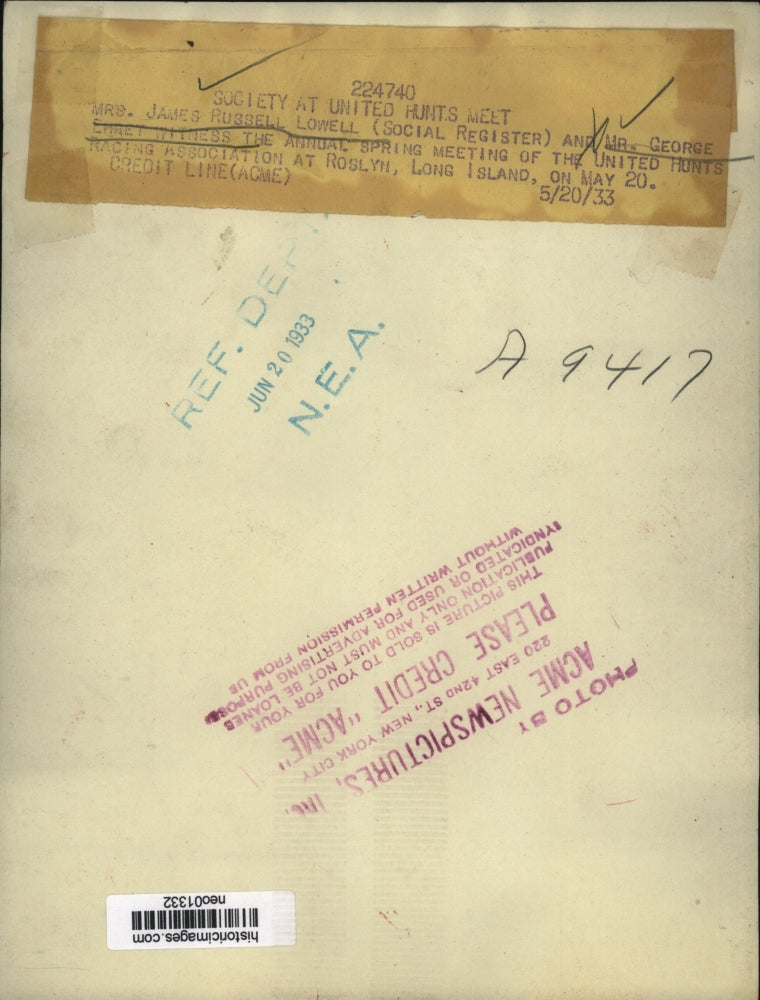 224740
SOCIETY AT UNITED HUNTS MEET
MRS. JAMES RUSSELL LOWELL (SOCIAL REGISTER) AND MR. GEORGE
EHRET WITNESS THE ANNUAL SPRING MEETING OF THE UNITED HUNTS
RACING ASSOCIATION AT ROSLYN, LONG ISLAND, ON MAY 20.
CREDIT LINE(ACME)
5/20/33
REF. DEPT.
JUN 20 1933
N.E.A.
A 9417
PHOTO BY
ACME NEWSPICTURES, INC.
220 EAST 42ND ST., NEW YORK CITY
PLEASE CREDIT "ACME"
THIS PICTURE IS SOLD TO YOU FOR YOUR
PUBLICATION ONLY AND MUST NOT BE LOANED
SYNDICATED OR USED FOR ADVERTISING PURPOSES
WITHOUT WRITTEN PERMISSION FROM US
historicimages.com
neo01332